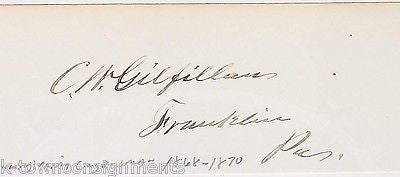 C. W. Gilfillan
Franklin
Pa.
1868-1870
k-townconsignments